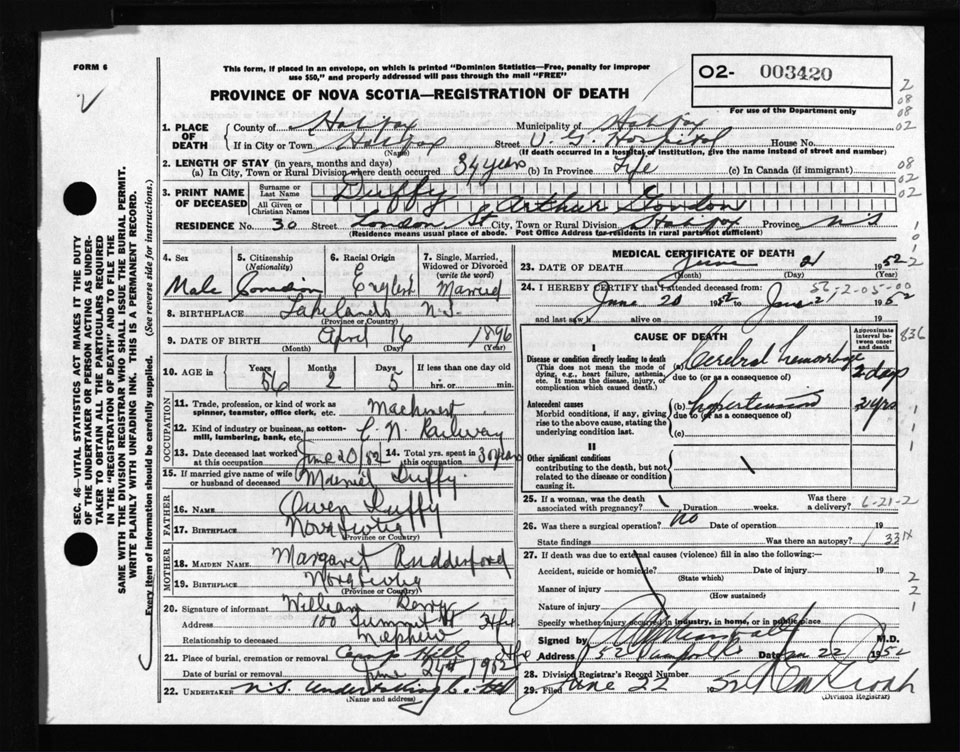 FORM 6
This form, if placed in an envelope, on which is printed "Dominion Statistics—Free, penalty for improper
use $50," and properly addressed will pass through the mail "FREE"
O2- 003420
For use of the Department only
PROVINCE OF NOVA SCOTIA—REGISTRATION OF DEATH
SEC. 46—VITAL STATISTICS ACT MAKES IT THE DUTY
OF THE UNDERTAKER OR PERSON ACTING AS UNDER-
TAKER TO OBTAIN ALL THE PARTICULARS REQUIRED
IN THE "REGISTRATION OF DEATH" AND TO FILE THE
SAME WITH THE DIVISION REGISTRAR WHO SHALL ISSUE THE BURIAL PERMIT.
WRITE PLAINLY WITH UNFADING INK. THIS IS A PERMANENT RECORD.
Every item of information should be carefully supplied. (See reverse side for instructions.)
1. PLACE OF DEATH
County of Halifax Municipality of Halifax
If in City or Town Halifax Street V. G. Hospital House No.
(Name) (If death occurred in a hospital or institution, give the name instead of street and number)
2. LENGTH OF STAY (in years, months and days)
(a) In City, Town or Rural Division where death occurred 34 years (b) In Province Life (c) In Canada (if immigrant)
3. PRINT NAME OF DECEASED
Surname or Last Name Duffy
All Given or Christian Names Arthur Gordon
RESIDENCE No. 30 Street London St City, Town or Rural Division Halifax Province N S
(Residence means usual place of abode. Post Office Address for residents in rural parts not sufficient)
4. Sex Male
5. Citizenship (Nationality) Canadian
6. Racial Origin English
7. Single, Married, Widowed or Divorced (write the word) Married
8. BIRTHPLACE Lakelands N.S.
(Province or Country)
9. DATE OF BIRTH April 16 1896
(Month) (Day) (Year)
10. AGE in Years 56 Months 2 Days 5 If less than one day old hrs. or min.
OCCUPATION
11. Trade, profession, or kind of work as spinner, teamster, office clerk, etc. Machinist
12. Kind of industry or business, as cotton-mill, lumbering, bank, etc. C. N. Railway
13. Date deceased last worked at this occupation June 20/52 14. Total yrs. spent in this occupation 30 years
15. If married give name of wife or husband of deceased Duffy
FATHER
16. Name Owen Duffy
17. Birthplace Nova Scotia
(Province or Country)
MOTHER
18. Maiden Name Margaret
19. Birthplace Nova Scotia
(Province or Country)
20. Signature of informant William
Address 100 Summit St Hfx
Relationship to deceased Nephew
21. Place of burial, cremation or removal Camp Hill Hfx
Date of burial or removal June 24th 1952
22. Undertaker N.S. Undertaking Co. Ltd
(Name and address)
MEDICAL CERTIFICATE OF DEATH
23. DATE OF DEATH June 21 1952
(Month) (Day) (Year)
24. I HEREBY CERTIFY that I attended deceased from:
June 20 1952 to June 21 1952
and last saw h alive on
CAUSE OF DEATH
Approximate interval between onset and death
I
Disease or condition directly leading to death
(This does not mean the mode of dying, e.g., heart failure, asthenia, etc. It means the disease, injury, or complication which caused death.)
(a) Cerebral hemorrhage 2 days
due to (or as a consequence of)
Antecedent causes
Morbid conditions, if any, giving rise to the above cause, stating the underlying condition last.
(b) hypertension 2 yrs
due to (or as a consequence of)
(c)
II
Other significant conditions
contributing to the death, but not related to the disease or condition causing it.
25. If a woman, was the death associated with pregnancy? Duration weeks. Was there a delivery? 6-21-2
26. Was there a surgical operation? no Date of operation 19
State findings Was there an autopsy?
27. If death was due to external causes (violence) fill in also the following:—
Accident, suicide or homicide? Date of injury 19
(State which)
Manner of injury
(How sustained)
Nature of injury
Specify whether injury occurred in industry, in home, or in public place
Signed by M.D.
Address 152 Date June 22 1952
28. Division Registrar's Record Number
29. Filed June 22 1952
(Division Registrar)
836
331X